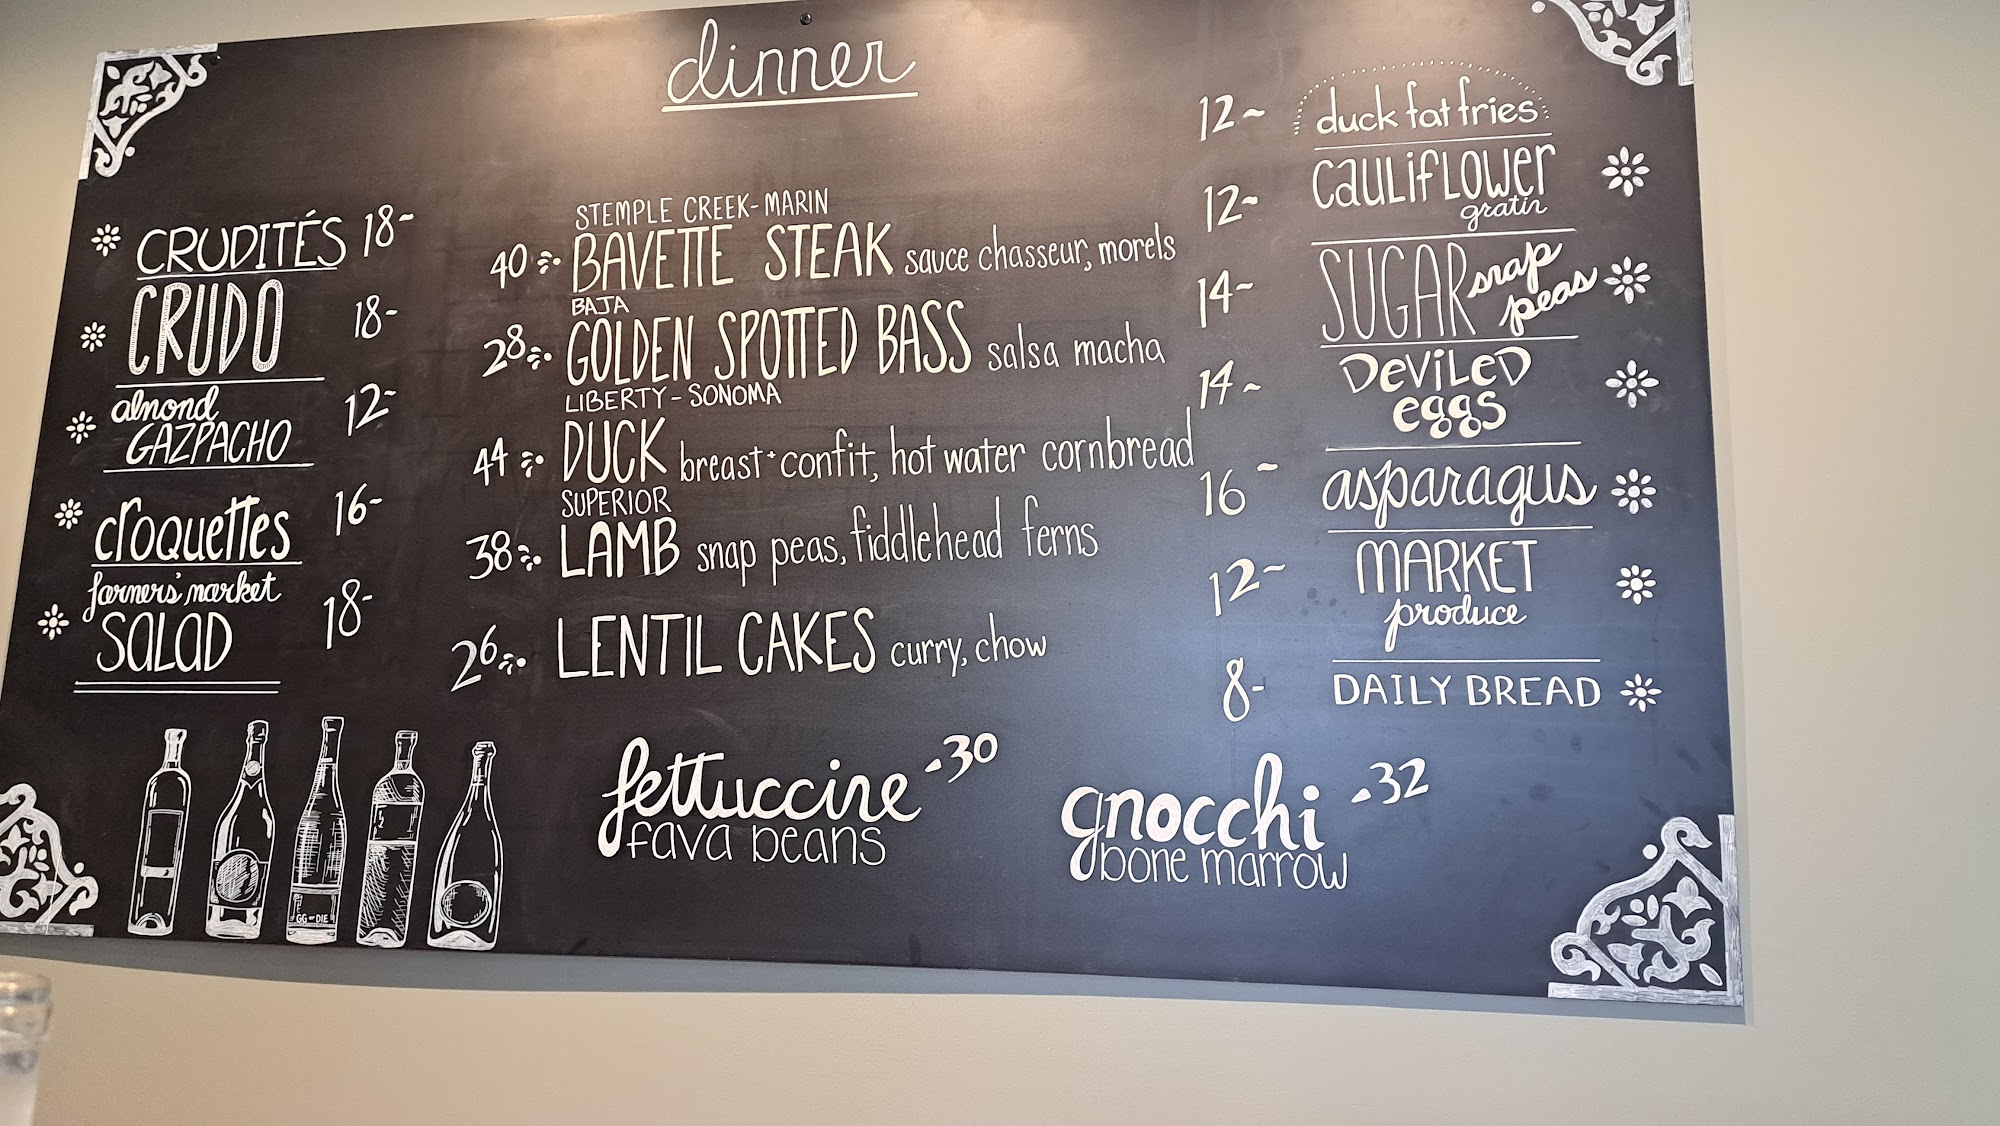 dinner
CRUDITÉS 18-
CRUDO 18-
almond 12-
GAZPACHO
croquettes 16-
farmers' market
SALAD 18-
STEMPLE CREEK-MARIN
40 BAVETTE STEAK sauce chasseur, morels
BAJA
28 GOLDEN SPOTTED BASS salsa macha
LIBERTY-SONOMA
44 DUCK breast+confit, hot water cornbread
SUPERIOR
38 LAMB snap peas, fiddlehead ferns
26 LENTIL CAKES curry, chow
12~ duck fat fries
12- cauliflower
gratin
14- SUGAR snap
peas
14~ Deviled
eggs
16~ asparagus
12~ MARKET
produce
8- DAILY BREAD
fettuccine -30
fava beans
gnocchi -32
bone marrow
GG or DIE